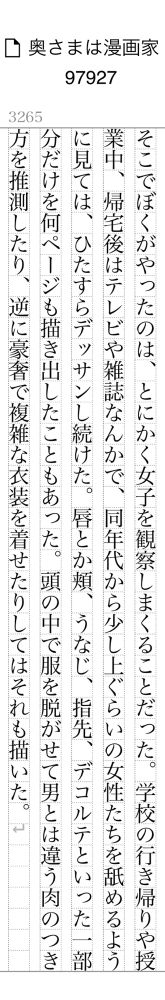 奥さまは漫画家
97927
3265
そこでぼくがやったのは、とにかく女子を観察しまくることだった。学校の行き帰りや授
業中、帰宅後はテレビや雑誌なんかで、同年代から少し上ぐらいの女性たちを舐めるよう
に見ては、ひたすらデッサンし続けた。唇とか頬、うなじ、指先、デコルテといった一部
分だけを何ページも描き出したこともあった。頭の中で服を脱がせて男とは違う肉のつき
方を推測したり、逆に豪奢で複雑な衣装を着せたりしてはそれも描いた。↵